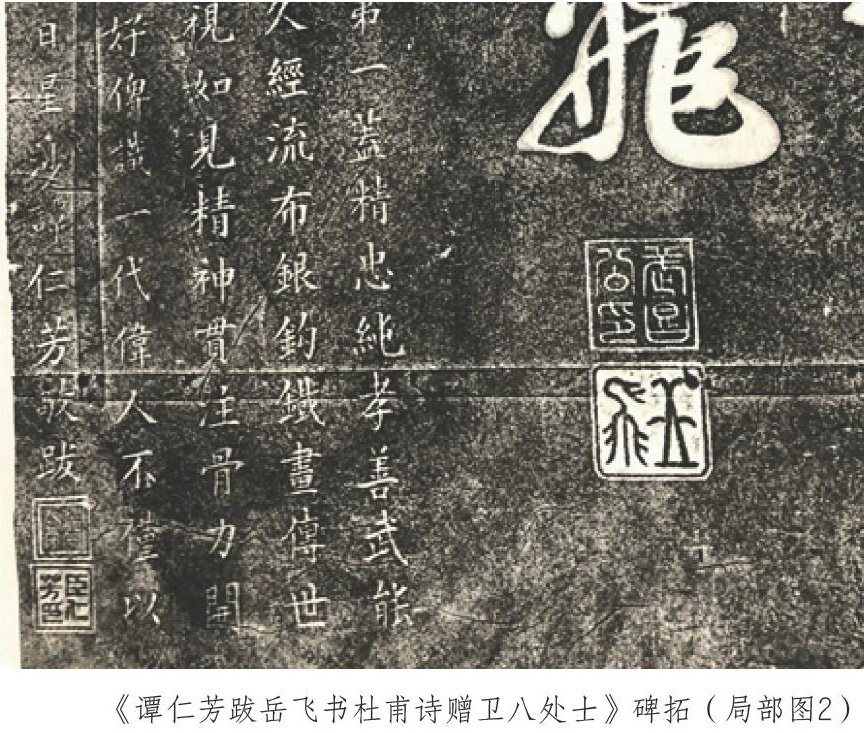 飛
武昌公印
岳飛
第一蓋精忠純孝善武能
久經流布銀鈎鐵畫傳世
視如見精神貫注骨力開
好俾識一代偉人不僅以
日星 仁芳敬跋
《谭仁芳跋岳飞书杜甫诗赠卫八处士》碑拓（局部图2）